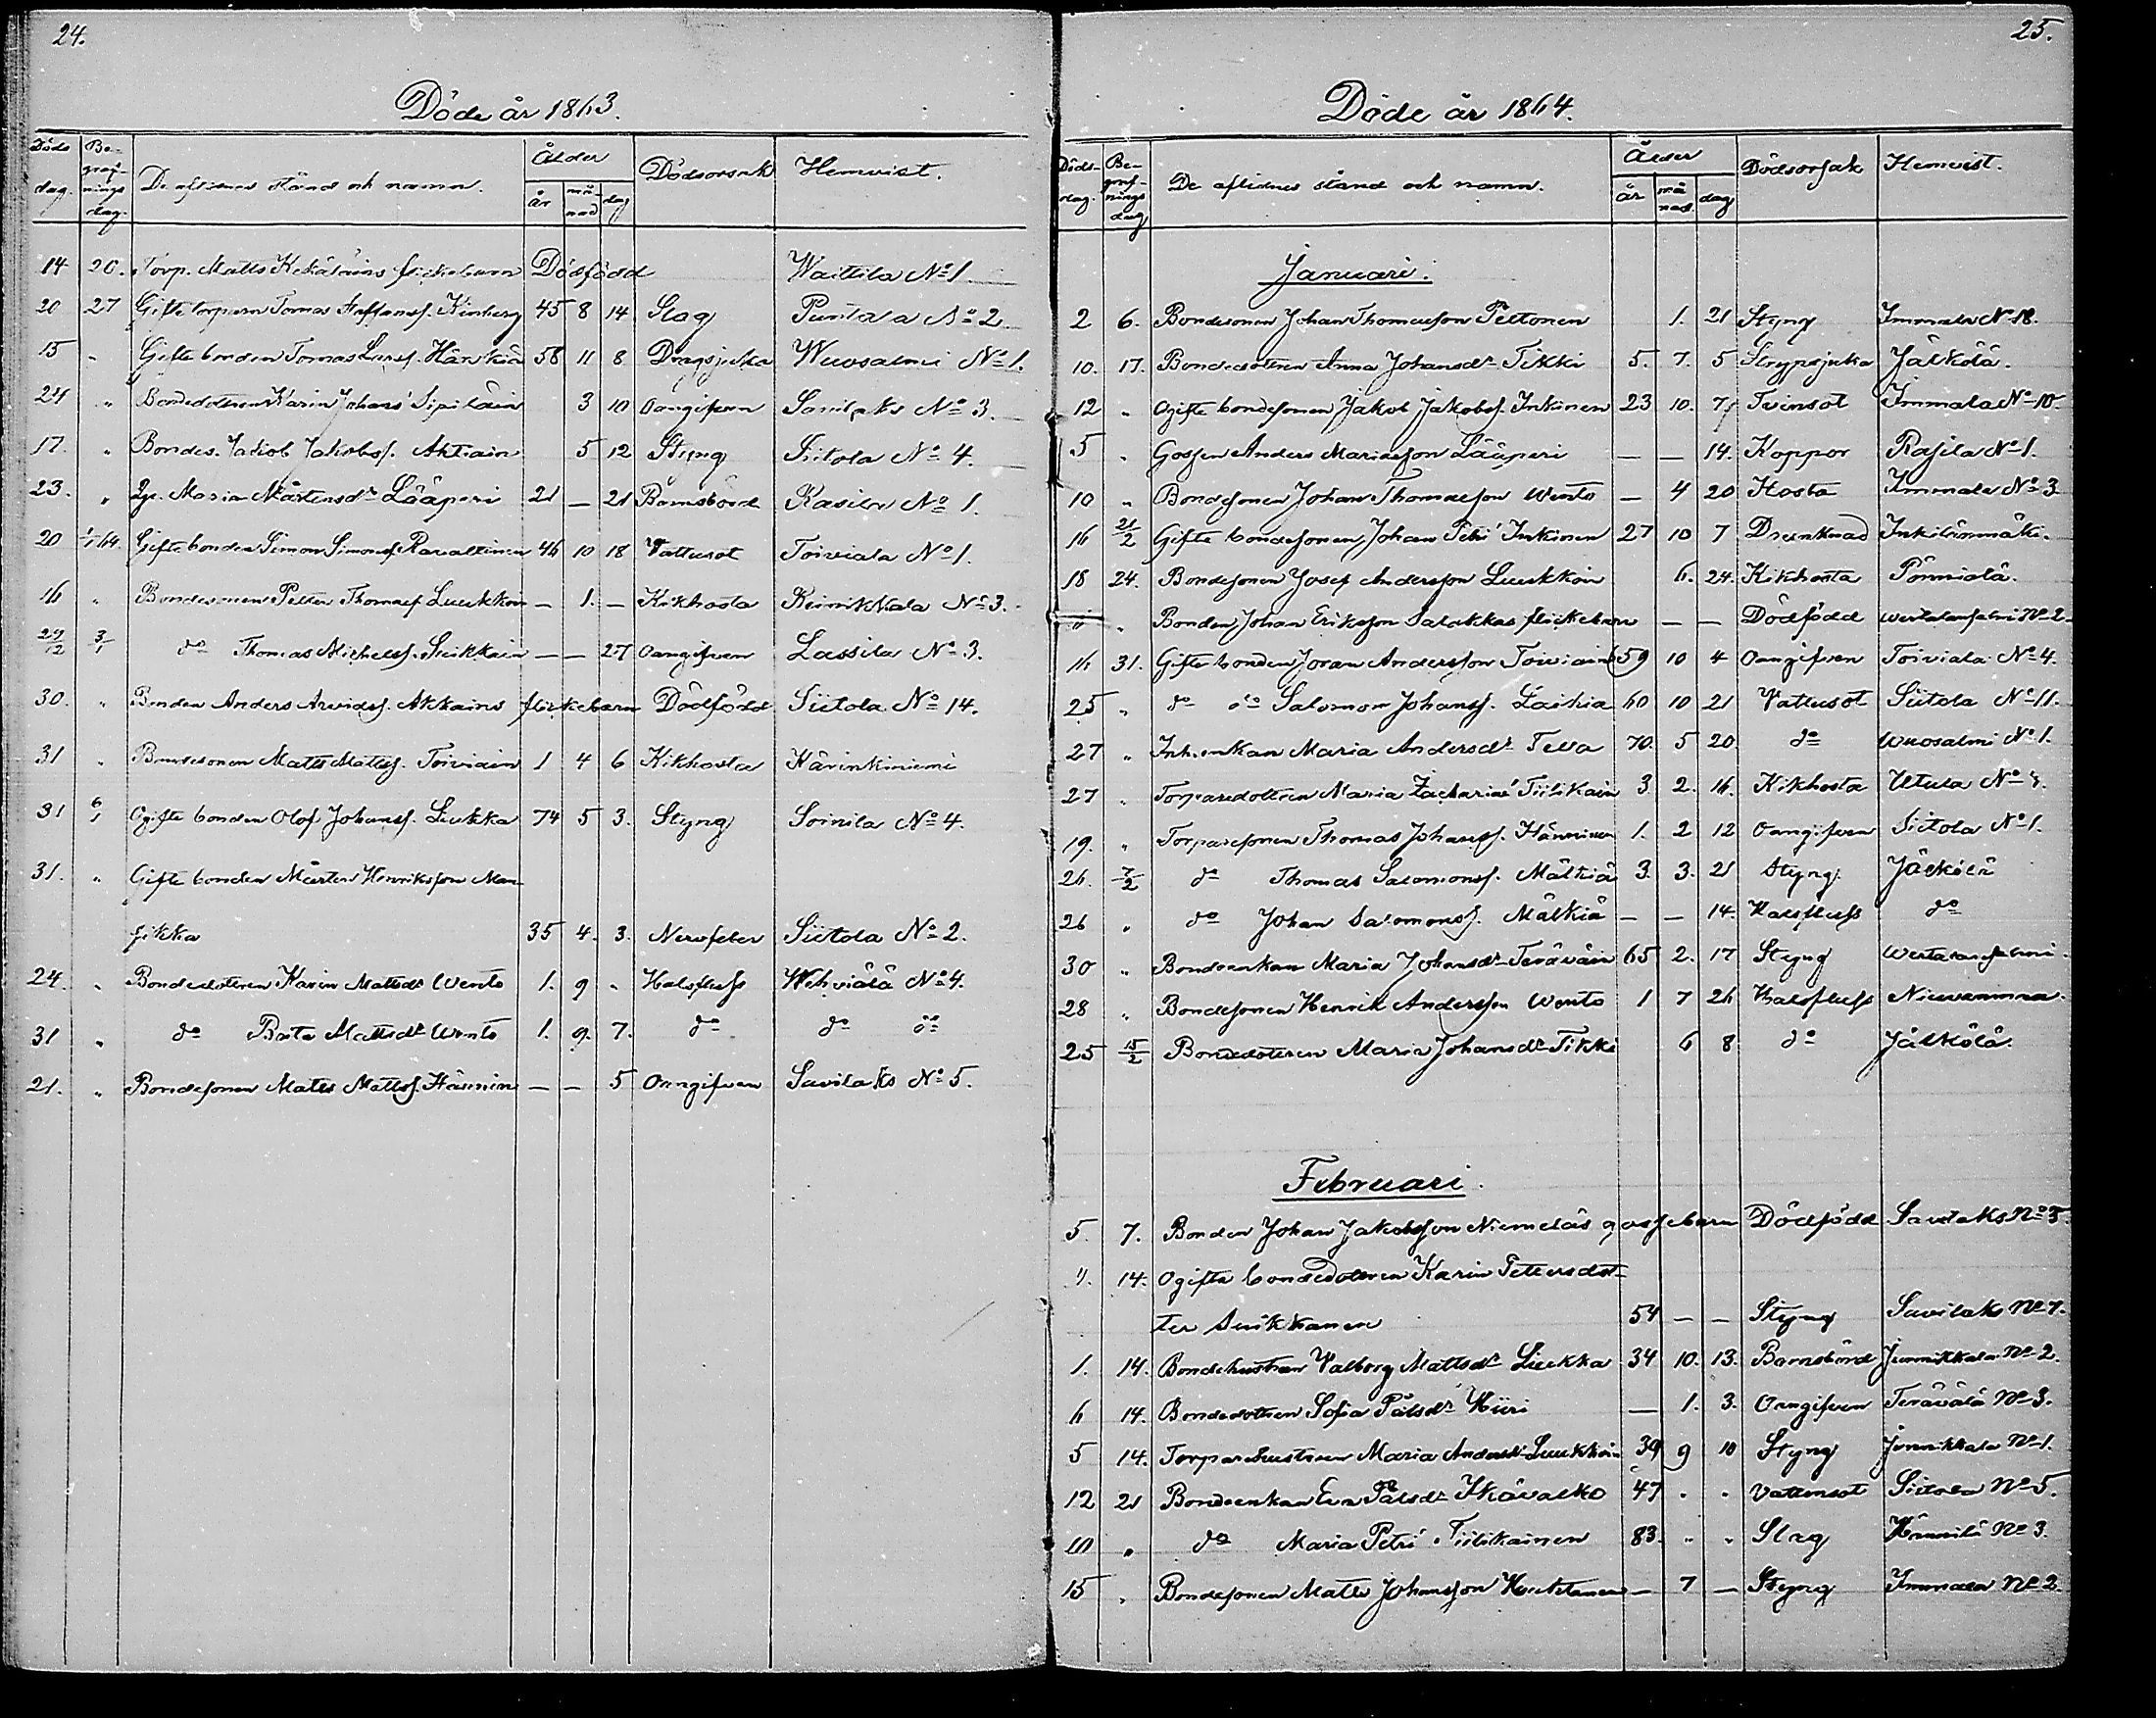 24.
Döde år 1863.
Döds dag. Begrafnings dag. De aflidnes stånd och namn. Ålder år månad dag Dödsorsak Hemvist.
14 20. Torp. Matts Kekäläins flickebarn Dödfödd Waittila No 1
20 27 Gifte torparen Tomas Staffanss. Kinberg 45 8 14 Slag Puntala No 2
15 " Gifte bonden Tomas Larss. Härskiä 58 11 8 Dragsjuka Wuosalmi No 1.
24 " Bondedottren Karin Johans' Sipiläin 3 10 Oangifven Savilaks No 3.
17. " Bondes. Jakob Jakobss. Ahtiain 5 12 Styng Siitola No 4.
23. " Maria Mårtensdr Lääperi 21 — 21 Barnsbörd Rasila No 1.
20 1/1 64. Gifte bonden Simon Simonss. Ravattinen 46 10 18 Vattusot Toiviala No 1.
16 " Bondesonen Petter Thomass. Luukkoin — 1. — Kikhosta No 3.
29/12 3/1 do Thomas Michelss. Suikkain — — 27 Oangifven Lassila No 3.
30. " Bonden Anders Arvidss. Akkains flickebarn Dödfödd Siitola No 14.
31 " Bondesonen Matts Mattss. Toiviain 1 4 6 Kikhosta Härinkiniemi
31 6/1 Ogifte bonden Olof Johanss. Liukka 74 5 3. Styng Soinila No 4.
31. " Gifte bonden Mårten Henriksson Man-
sikka 35 4. 3. Nervfeber Siitola No 2.
24. " Bondedottren Karin Mattsdr Wento 1. 9 " Halsfluss Wehviälä No 4.
31 " do Beata Mattsdr Wento 1. 9. 7. do do do
21. " Bondesonen Matts Mattss. Hännin — — 5 Oangifven Savilaks No 5.
25.
Döde år 1864.
Döds-dag. Begrafnings dag De aflidnes stånd och namn. Ålder år månad. dag Dödsorsak Hemvist.
Januari.
2 6. Bondesonen Johan Thomasson Peltonen 1. 21 Styng Immala No 18.
10. 17. Bondedottren Anna Johansdr Tikki 5. 7. 5 Strypsjuka Jälkölä.
12 " Ogifte bondesonen Jakob Jakobss. Inkinen 23 10. 7 Tvinsot Immala No 10.
5 " Gossen Anders Mariasson Lääperi — — 14. Koppor Rasila No 1.
10 " Bondesonen Johan Thomasson Wento — 4 20 Hosta Immala No 3
16 21/2 Gifte bondesonen Johan Petri' Inkinen 27 10 7 Drunknad Inkilänmäki.
18 24. Bondesonen Josef Andersson Luukkoin 6. 24. Kikhosta Pönniälä.
" " Bonden Johan Eriksson Salakkas flickebarn — — Dödfödd No 2
16 31. Gifte bonden Joran Andersson Toiviain 59 10 4 Oangifven Toiviala No 4.
25 " do do Salomon Johanss. Laihia 60 10 21 Vattusot Siitola No 11.
27 " Inh.enkan Maria Andersdr Teva 70. 5 20. do Wuosalmi No 1.
27 " Torparedottren Maria Zachariae' Tiilikain 3 2. 16. Kikhosta Utula No 4.
19. " Torparesonen Thomas Johanss. Hänninen 1. 2 12 Oangifven Siitola No 1.
26. 7/2 do Thomas Salomonss. Mälkiä 3. 3. 21 Styng. Jälkölä
26 " do Johan Salomonss. Mälkiä — — 14. Halsfluss do
30 " Bondeenkan Maria Johansdr Teräväin 65 2. 17 Styng
28 " Bondesonen Henrik Andersson Wento 1 7 26 Halsfluss
25 15/2 Bondedottren Maria Johansdr Tikki 6 8 do Jälkölä.
Februari.
5. 7. Bonden Johan Jakobsson Niemeläs gossebarn Dödfödd Savilaks No 5.
". 14. Ogifta bondedottren Karin Petersdot-
ter Suikkanen 54 — — Styng Savilaks No 7.
1. 14. Bondehustrun Valborg Mattsdr Liukka 34 10. 13. Barnsbörd Junnikkala No 2.
6 14. Bondedottren Sofia Pålsdr Hiiri — 1. 3. Oangifven Teräválä No 3.
5 14. Torparehustrun Maria Andersdr Luukkoin 39 9 10 Styng Junnikkala No 1.
12 21 Bondeenkan Eva Pålsdr Ikävalko 47 " " Vattusot Siitola No 5.
10 " do Maria Petri' Tiilikainen 83. " " Slag Hännilä No 3.
15 " Bondesonen Matts Johansson — 7 — Styng Immala No 2.